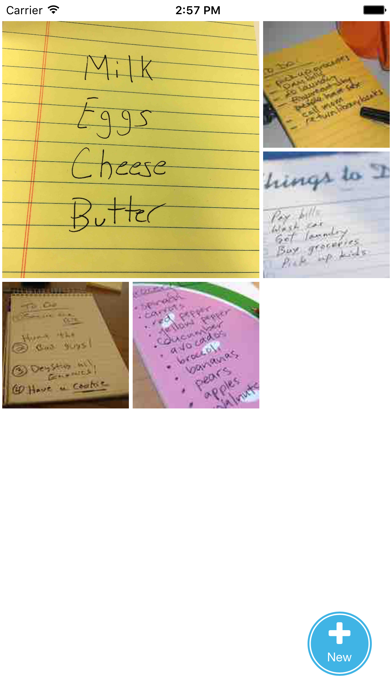 Carrier 2:57 PM
Milk
Eggs
Cheese
Butter
To Do:
- pick up groceries
- pay bills
- do laundry
- call mom
- return library books
Things to D
Pay bills
Wash car
Get laundry
Buy groceries
Pick up kids
To Do
Hung the
② 
③ Destroy all
④ Have a cookie
spinach
• carrots
• red pepper
• yellow pepper
• cucumber
• avocados
• broccoli
• bananas
• pears
• apples
walnuts
New